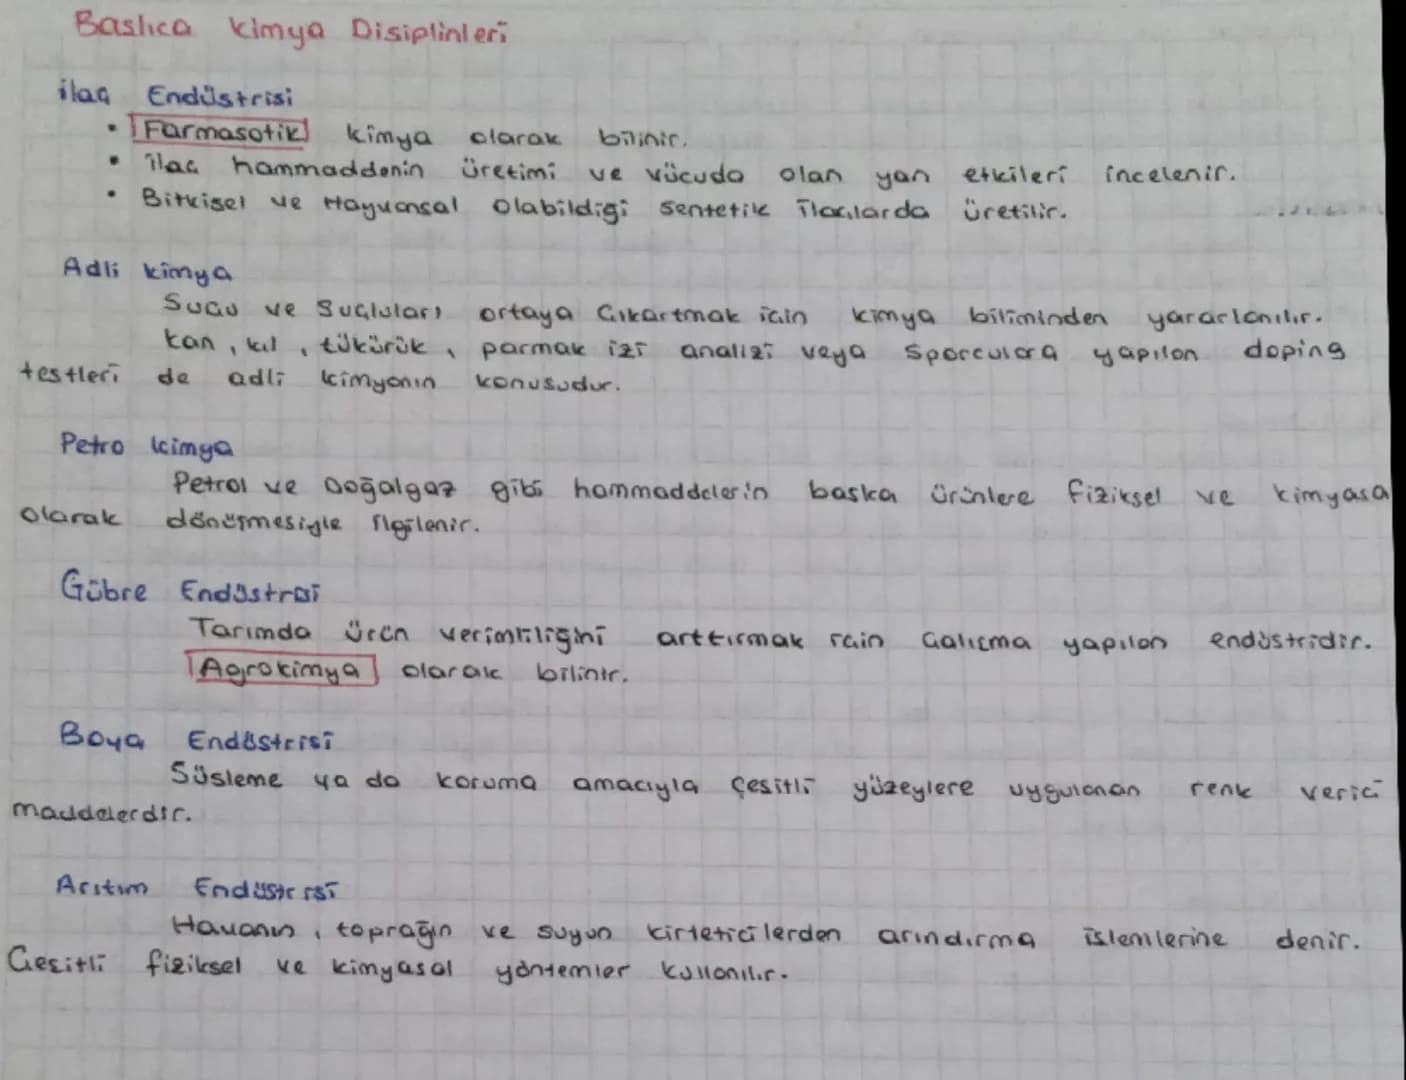 Baslıca kimya Disiplinleri
ilaç Endüstrisi
• Farmasotik kimya olarak bilinir.
• ilaç hammaddenin üretimi ve vücuda olan yan etkileri incelenir.
• Bitkisel ve Hayvansal olabildiği sentetik ilaçlarda üretilir.
Adli kimya
Suçu ve Suçluları ortaya Çıkartmak için kimya biliminden yararlanılır.
kan, kıl, tükürük, parmak izi analizi veya Sporculara yapılan doping
testleri de adli kimyanın konusudur.
Petro kimya
Petrol ve Doğalgaz gibi hammaddelerin baska ürünlere fiziksel ve kimyasa
olarak dönüşmesiyle ilgilenir.
Gübre Endüstrisi
Tarımda ürün verimliliğini arttırmak için Çalışma yapılan endüstridir.
Agrokimya olarak bilinir.
Boya Endüstrisi
Süsleme ya da koruma amacıyla Çesitli yüzeylere uygulanan renk verici
maddelerdir.
Arıtım Endüstrisi
Havanın, toprağın ve suyun kirleticilerden arındırma islemlerine denir.
Çeşitli fiziksel ve kimyasal yöntemler kullanılır.